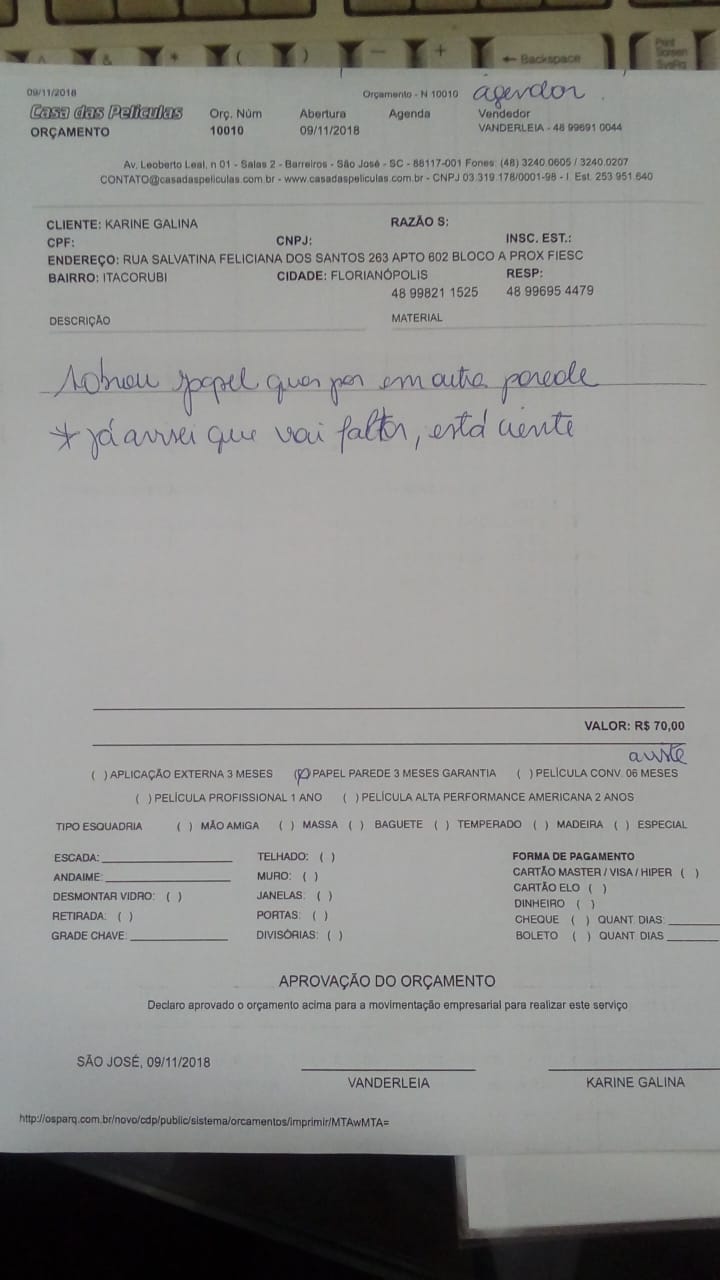 09/11/2018 Orçamento - N 10010 agendar.
Casa das Películas Orç. Núm Abertura Agenda Vendedor
ORÇAMENTO 10010 09/11/2018 VANDERLEIA - 48 99691 0044
Av. Leoberto Leal, n 01 - Salas 2 - Barreiros - São José - SC - 88117-001 Fones: (48) 3240.0605 / 3240.0207
CONTATO@casadaspeliculas.com.br - www.casadaspeliculas.com.br - CNPJ 03.319.178/0001-98 - I. Est. 253.951.640
CLIENTE: KARINE GALINA RAZÃO S:
CPF: CNPJ: INSC. EST.:
ENDEREÇO: RUA SALVATINA FELICIANA DOS SANTOS 263 APTO 602 BLOCO A PROX FIESC
BAIRRO: ITACORUBI CIDADE: FLORIANÓPOLIS RESP:
48 99821 1525 48 99695 4479
DESCRIÇÃO MATERIAL
Sobrou papel quer por em outra parede
* já avisei que vai faltar, está ciente
VALOR: R$ 70,00
( ) APLICAÇÃO EXTERNA 3 MESES ( ) PAPEL PAREDE 3 MESES GARANTIA ( ) PELÍCULA CONV. 06 MESES
( ) PELÍCULA PROFISSIONAL 1 ANO ( ) PELÍCULA ALTA PERFORMANCE AMERICANA 2 ANOS
TIPO ESQUADRIA ( ) MÃO AMIGA ( ) MASSA ( ) BAGUETE ( ) TEMPERADO ( ) MADEIRA ( ) ESPECIAL
ESCADA: TELHADO: ( ) FORMA DE PAGAMENTO
ANDAIME: MURO: ( ) CARTÃO MASTER / VISA / HIPER ( )
DESMONTAR VIDRO: ( ) JANELAS: ( ) CARTÃO ELO ( )
RETIRADA: ( ) PORTAS: ( ) DINHEIRO ( )
GRADE CHAVE: DIVISÓRIAS: ( ) CHEQUE ( ) QUANT. DIAS:
BOLETO ( ) QUANT. DIAS
APROVAÇÃO DO ORÇAMENTO
Declaro aprovado o orçamento acima para a movimentação empresarial para realizar este serviço
SÃO JOSÉ, 09/11/2018
VANDERLEIA KARINE GALINA
http://osparq.com.br/novo/cdp/public/sistema/orcamentos/imprimir/MTAwMTA=
← Backspace
Print
Screen
SysRq